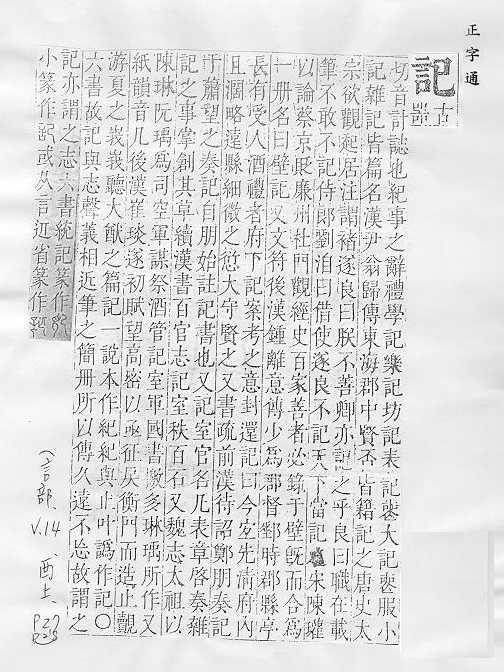 正字通
記
古
切音計誌也紀事之辭禮學記樂記坊記表記喪大記喪服小
記雜記皆篇名漢尹翁歸傳東海郡中賢否皆籍記之唐史太
宗欲觀起居注謂褚遂良曰朕不善卿亦記之乎良曰職在載
筆不敢不記侍郎劉洎曰借使遂良不記天下當記
朱陳瓘
以論蔡京貶廉州杜門觀經史百家善者必錄于壁旣而合爲
一册名曰壁記又文符後漢鍾離意傳少爲郡督郵時郡縣亭
長有受人酒禮者府下記案考之意封還記曰今宐先淸府內
且濶略遠縣細微之愆大守賢之又書疏前漢待詔鄭朋奏記
于蕭望之奏記自朋始註記書也又記室官名凡表章啓奏雜
記之事掌創其草續漢書百官志記室秩百石又魏志太祖以
陳琳阮瑀爲司空軍謀祭酒管記室軍國書檄多琳瑀所作又
紙韻音几後漢崔琰遂初賦望高密以亟征戾衡門而造止覿
游夏之峩峩聽大猷之篇記一說本作紀紀與止叶譌作記〇
六書故記與志聲義相近筆之簡册所以傳久遠不忘故謂之
記亦謂之志六書統記篆作
小篆作
或从言近省篆作
(言部.
V.14
酉上.
P27